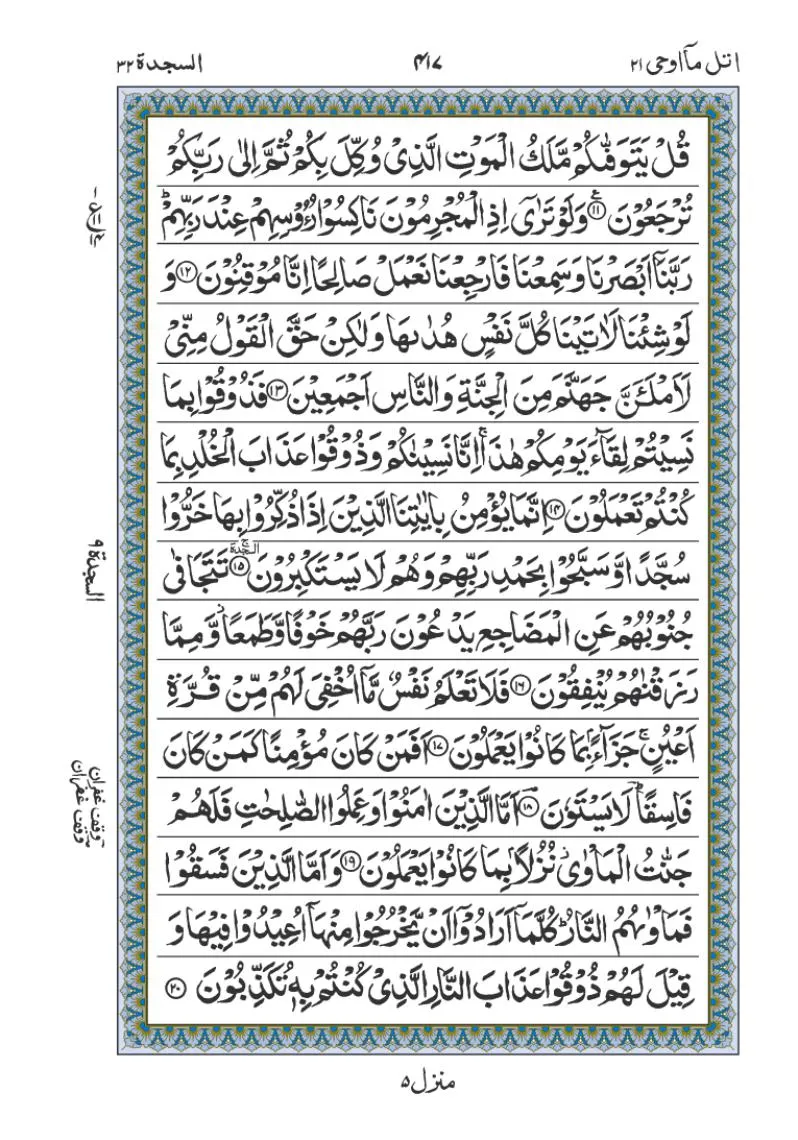 اتل مآاوحی ۲۱
۴۱۷
السجدة ۳۲
قُلْ يَتَوَفّٰىكُمْ مَّلَكُ الْمَوْتِ الَّذِىْ وُكِّلَ بِكُمْ ثُمَّ اِلٰى رَبِّكُمْ
تُرْجَعُوْنَ ۧ﴿۱۱﴾ وَلَوْ تَرٰٓى اِذِ الْمُجْرِمُوْنَ نَاكِسُوْا رُءُوْسِهِمْ عِنْدَ رَبِّهِمْ ؕ
رَبَّنَاۤ اَبْصَرْنَا وَسَمِعْنَا فَارْجِعْنَا نَعْمَلْ صَالِحًا اِنَّا مُوْقِنُوْنَ ﴿۱۲﴾ وَ
لَوْ شِئْنَا لَاٰتَيْنَا كُلَّ نَفْسٍ هُدٰٮهَا وَلٰكِنْ حَقَّ الْقَوْلُ مِنِّىْ
لَاَمْلَـَٔنَّ جَهَنَّمَ مِنَ الْجِنَّةِ وَالنَّاسِ اَجْمَعِيْنَ ﴿۱۳﴾ فَذُوْقُوْا بِمَا
نَسِيْتُمْ لِقَآءَ يَوْمِكُمْ هٰذَا ۚ اِنَّا نَسِيْنٰكُمْ وَذُوْقُوْا عَذَابَ الْخُلْدِ بِمَا
كُنْتُمْ تَعْمَلُوْنَ ﴿۱۴﴾ اِنَّمَا يُؤْمِنُ بِاٰيٰتِنَا الَّذِيْنَ اِذَا ذُكِّرُوْا بِهَا خَرُّوْا
سُجَّدًا وَّسَبَّحُوْا بِحَمْدِ رَبِّهِمْ وَهُمْ لَا يَسْتَكْبِرُوْنَ السجدة ﴿۱۵﴾ تَتَجَافٰى
جُنُوْبُهُمْ عَنِ الْمَضَاجِعِ يَدْعُوْنَ رَبَّهُمْ خَوْفًا وَّطَمَعًا ؗ وَّمِمَّا
رَزَقْنٰهُمْ يُنْفِقُوْنَ ﴿۱۶﴾ فَلَا تَعْلَمُ نَفْسٌ مَّاۤ اُخْفِىَ لَهُمْ مِّنْ قُرَّةِ
اَعْيُنٍ ۚ جَزَآءًۢ بِمَا كَانُوْا يَعْمَلُوْنَ ﴿۱۷﴾ اَفَمَنْ كَانَ مُؤْمِنًا كَمَنْ كَانَ
فَاسِقًا ؕ لَا يَسْتَوٗنَ ﴿۱۸﴾ اَمَّا الَّذِيْنَ اٰمَنُوْا وَعَمِلُوا الصّٰلِحٰتِ فَلَهُمْ
جَنّٰتُ الْمَاْوٰى ؗ نُزُلًاۢ بِمَا كَانُوْا يَعْمَلُوْنَ ﴿۱۹﴾ وَاَمَّا الَّذِيْنَ فَسَقُوْا
فَمَاْوٰٮهُمُ النَّارُ ؕ كُلَّمَاۤ اَرَادُوْۤا اَنْ يَّخْرُجُوْا مِنْهَاۤ اُعِيْدُوْا فِيْهَا وَ
قِيْلَ لَهُمْ ذُوْقُوْا عَذَابَ النَّارِ الَّذِىْ كُنْتُمْ بِهٖ تُكَذِّبُوْنَ ﴿۲۰﴾
السجدة ۹
وقف غفران
وقف غفران
منزل ۵